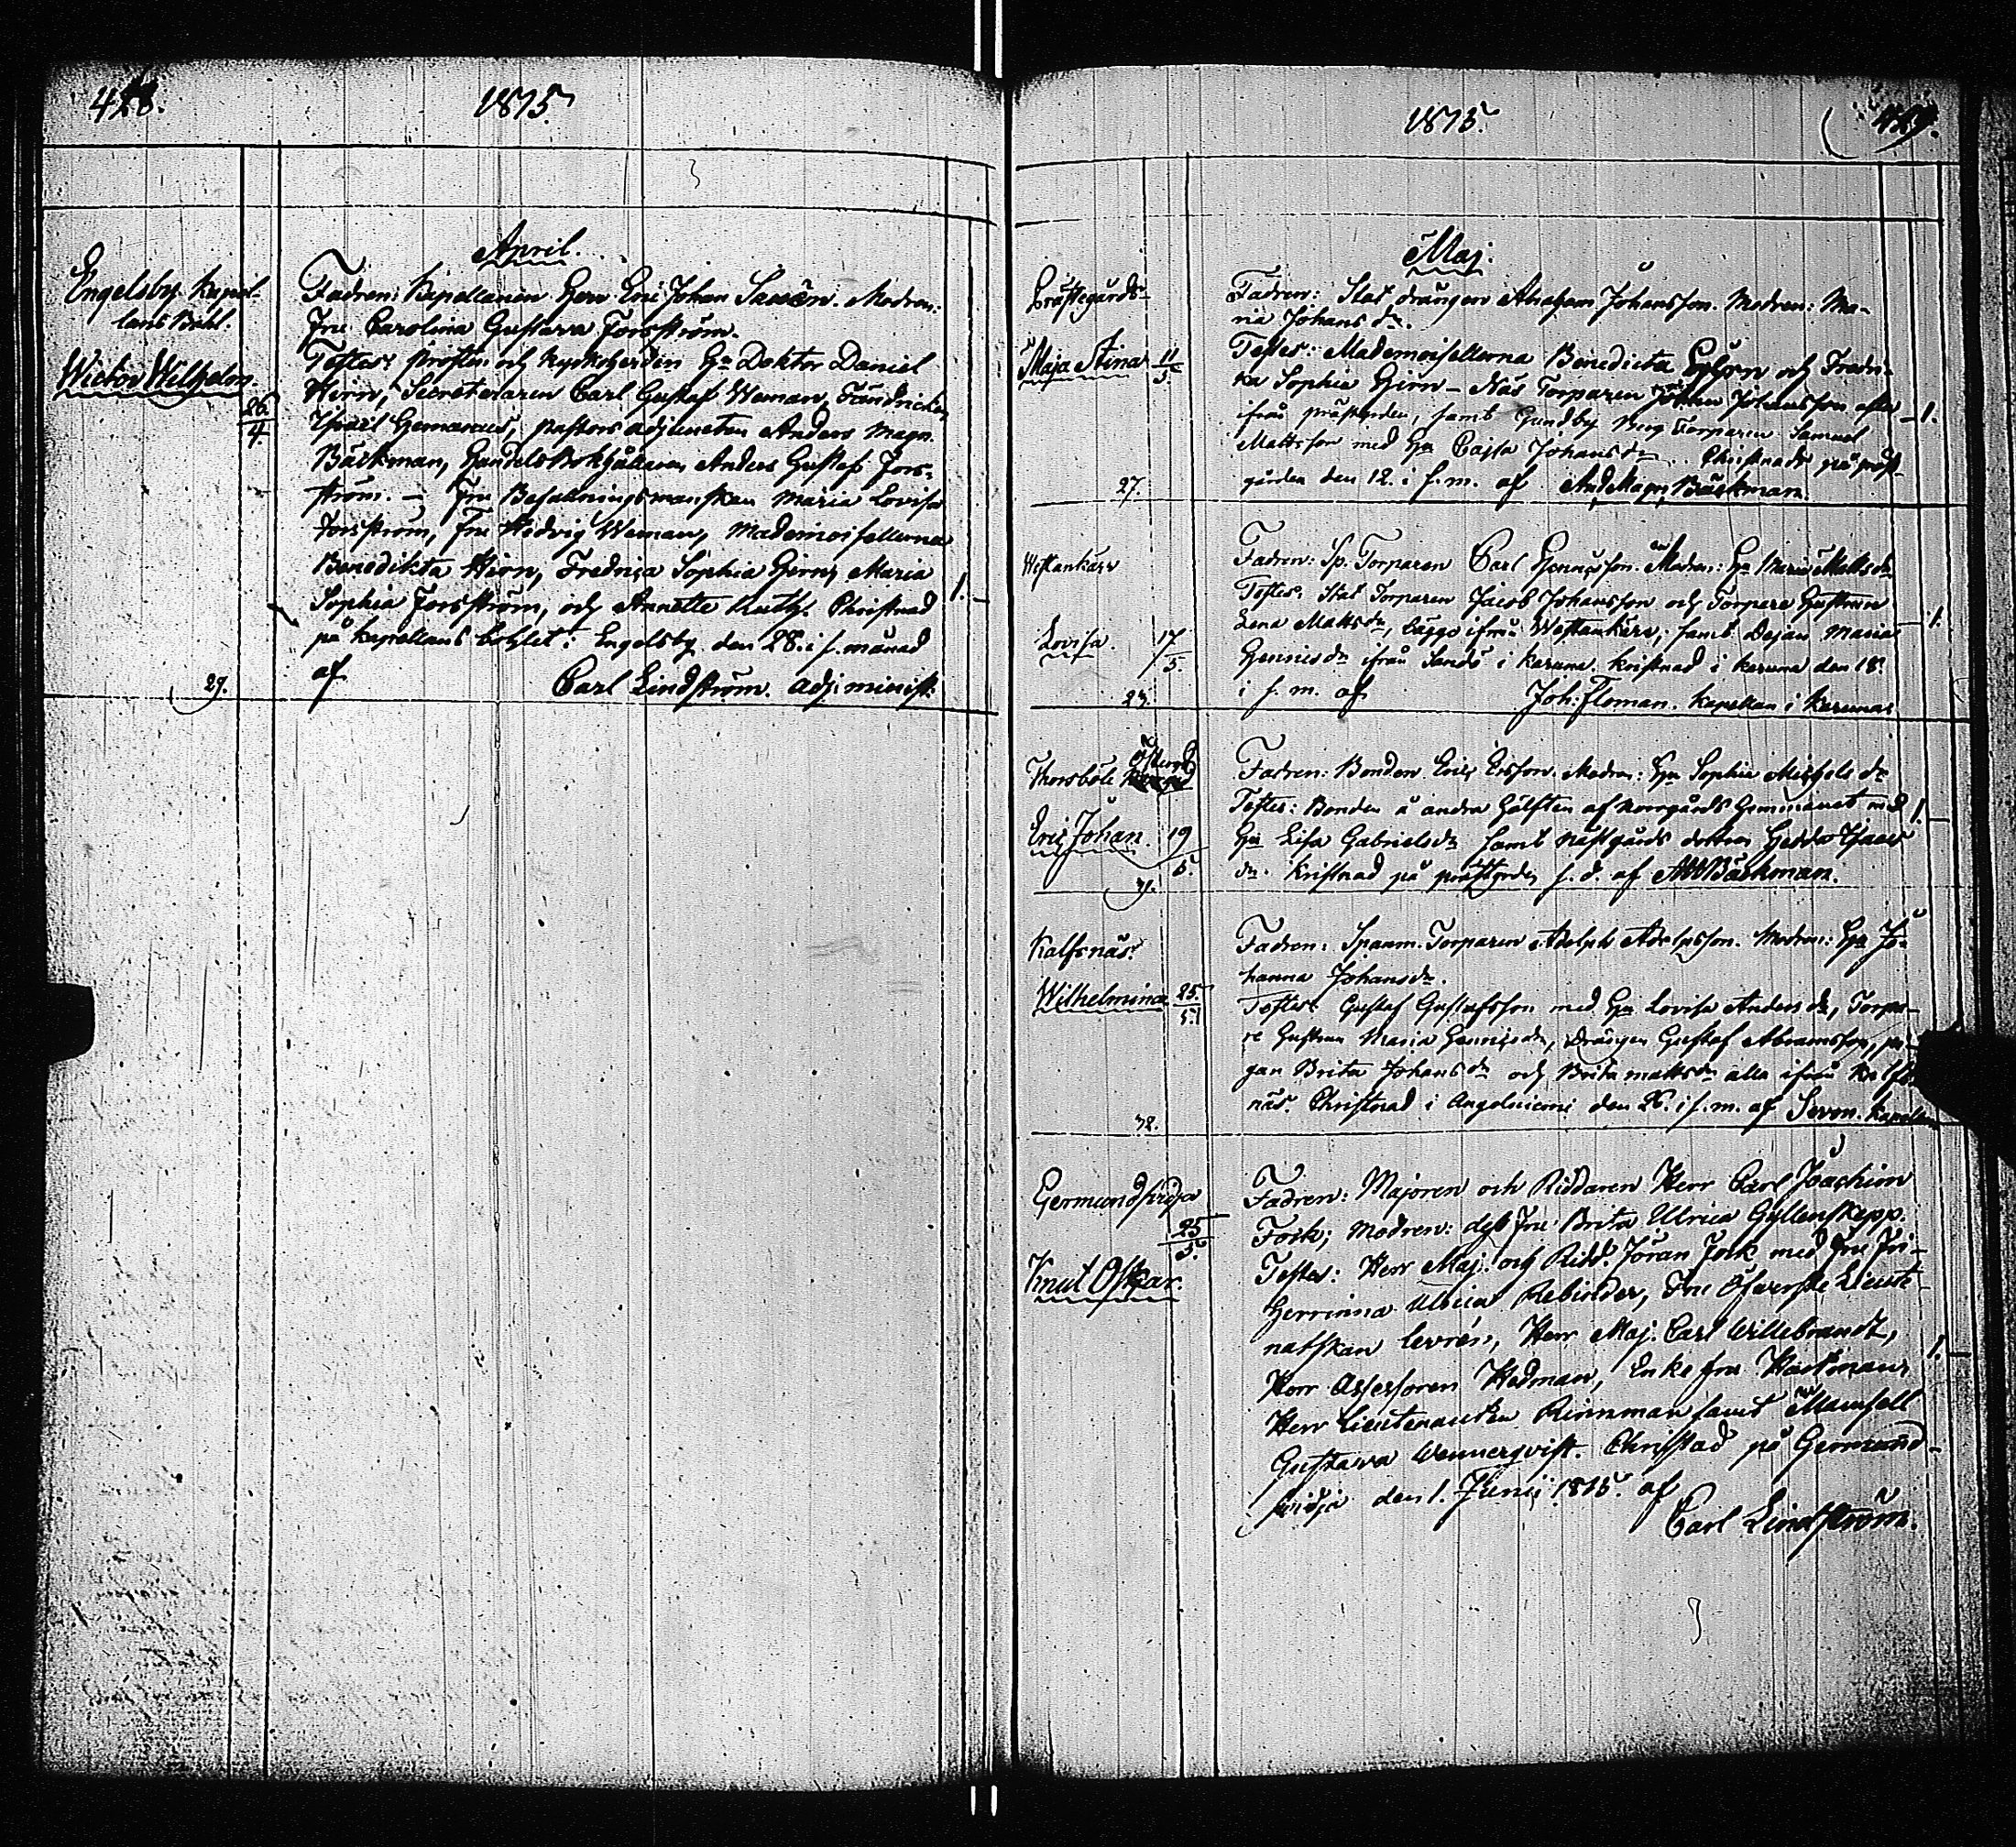 428.
1815.
April.
Engelsby Kapel-
lans Bohl.
Wictor Wilhelm.
26
4.
29.
Fadren: Kapellanen Herr Eric Johan Modren:
Fru Carolina Gustava Forsström.
Testes: Prosten och Kyrkoherden Hr Doktor Daniel
Hirn, Secreteraren Carl Gustaf Weman, Fändricken
pastors adjuncten Anders Magn.
Bäckman, Handels Bokhållaren Anders Gustaf Fors-
ström. — Fru Befallningsmanskan Maria Lovisa
Forsström, Fru Hedvig Weman, Mademoisellerna
Benedikta Hirn, Fredrica Sophia Hirn, Maria
Sophia Forsström, och Annette Christnad
på Kapellans bohlet i Engelsby den 28. i s. månad
af
Carl Lindström. adj. minist.
1.
1815.
429.
Maj.
Prästegårds-
Maja Stina
11
5.
27.
Fadren: Stat drängen Abraham Johansson. Modren: Ma-
ria Johans dr.
Testes: Mademoisellerna Benedicta och Fredri-
ka Sophia Hirn — Näs Torparen Johan Johansson
ifrån prästgården, samt Gundby Berg Torparen Samuel
Mattsson med Hu Cajsa Johansdr. Christnadt på präst-
gården den 12. i s. m. af And Magn Bäckman.
1.
Westankärr
Lovisa.
17
5.
Fadren: Sp. Torparen Carl Henricsson. Modren: Hu Maria Mattsdr
Testes: Stat Torparen Jacob Johansson och Torpare Hustrun
Lena Mattsdr, bägge ifrån Westankärr, samt Dejan Maria
Henricsdr ifrån Sandö i Karuna. Kristnad i Karuna den 18.
i s. m. af
Joh: Floman. Kapellan i Karuna
1.
Thorsböle
Eric Johan.
19
5.
31.
Fadren: Bonden Eric Ersson. Modren: Hu Sophia Michels dr
Testes: Bonden å andra hälften af Norrgårds Hemmanet med
Hu Lisa Gabrielsdr samt nästgårds dottren Hedda Isaacs
dr. Kristnad på prästgården s. d. af AMBäckman.
1.
Kalfsnäs.
Wilhelmina
25.
5.
32.
Fadren: Spanm. Torparen Adolph Adolphsson. Modren: Hu Jo-
hanna Johansdr.
Testes: Gustaf Gustafsson med Hu Lovisa Andersdr, Torpa-
re Hustrun Maria Henricsdr, Drängen Gustaf Abramsson, pi-
gan Brita Johansdr och Brita Mattsdr alla ifrån Kalfs-
näs. Christnad i Angelniemi den 26. i s. m. af Kapellan
Germundsvidja
25
5.
Knut Oskar.
Fadren: Majoren och Riddaren Herr Carl Joachim
Fock; Modren: dess Fru Brita Ulrica Gyllenskepp.
Testes: Herr Maj. och Ridd. Jöran Fock med Fru Fri-
herrinna Ulrica Rebinder, Fru Öfverste Lieute-
natskan Herr Maj. Carl Willebrandt,
Herr Assessoren Hedman, Enke fru Hackman,
Herr Lieutenanten samt Mamsell
Gustava Wennerqvist. Christnad på Germund-
svidja den 1. Junii 1815. af
Carl Lindström.
1.